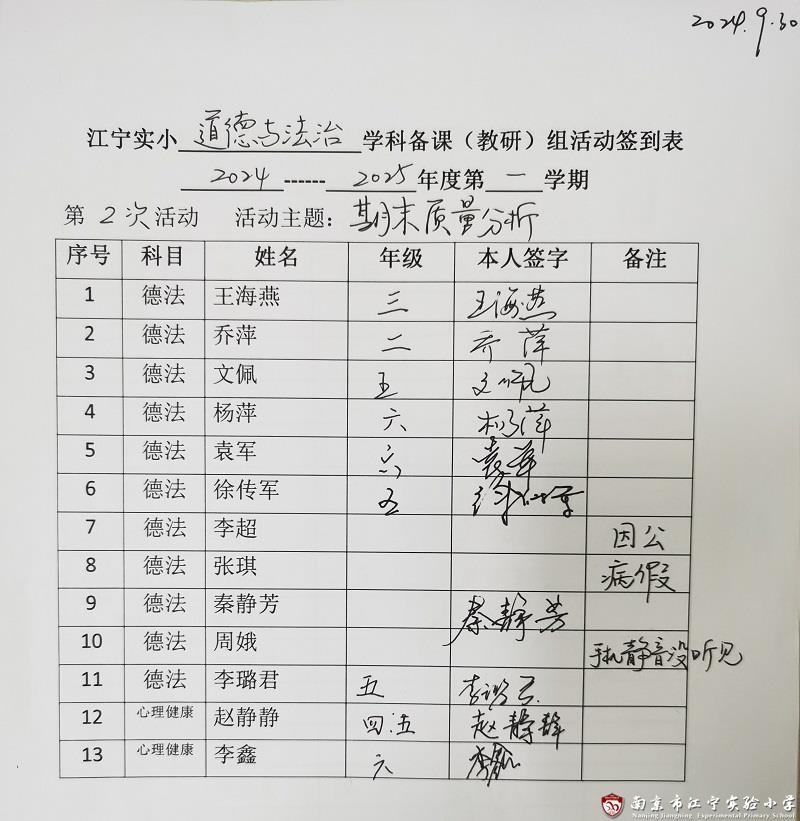 2024.9.30
江宁实小 道德与法治 学科备课（教研）组活动签到表
2024------2025年度第一学期
第2次活动 活动主题：期末质量分析
序号 科目 姓名 年级 本人签字 备注
1 德法 王海燕 三 王海燕
2 德法 乔萍 二 乔萍
3 德法 文佩 五 文佩
4 德法 杨萍 六 杨萍
5 德法 袁军 六 袁军
6 德法 徐传军 五 徐传军
7 德法 李超 因公
8 德法 张琪 病假
9 德法 秦静芳 秦静芳
10 德法 周娥 手机静音没听见
11 德法 李璐君 五 李璐君
12 心理健康 赵静静 四.五 赵静静
13 心理健康 李鑫 六 李鑫
南京市江宁实验小学
Nanjing Jiangning, Experimental Primary School